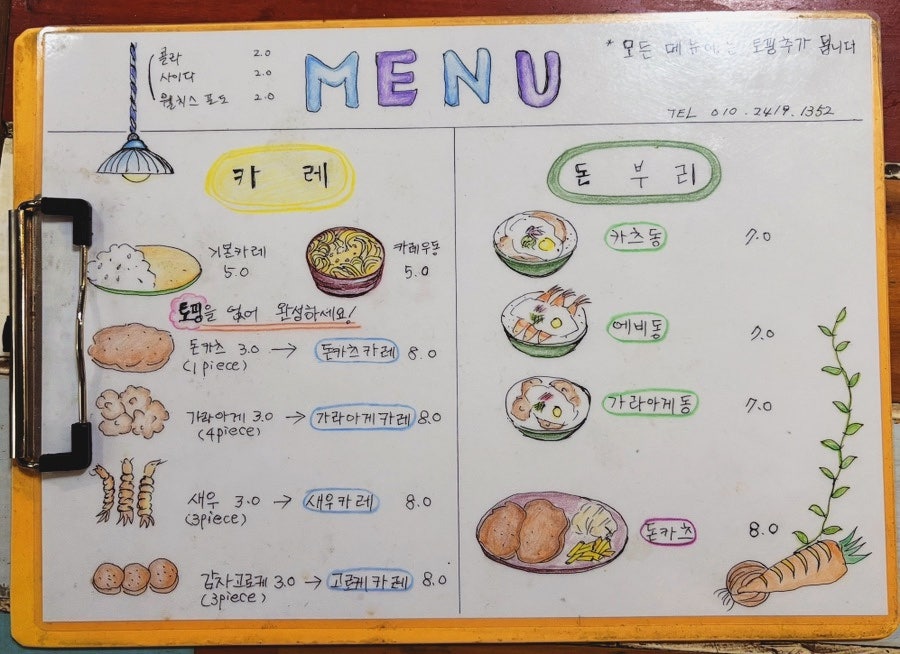 콜라 2.0
사이다 2.0
웰치스 포도 2.0
MENU
* 모든 메뉴에는 토핑추가 됩니다
TEL 010.2419.1352
카레
기본카레
5.0
카레우동
5.0
토핑을 얹어 완성하세요!
돈카츠 3.0 → 돈카츠카레 8.0
(1piece)
가라아게 3.0 → 가라아게카레 8.0
(4piece)
새우 3.0 → 새우카레 8.0
(3piece)
감자고로케 3.0 → 고로케카레 8.0
(3piece)
돈부리
카츠동 7.0
에비동 7.0
가라아게동 7.0
돈카츠 8.0